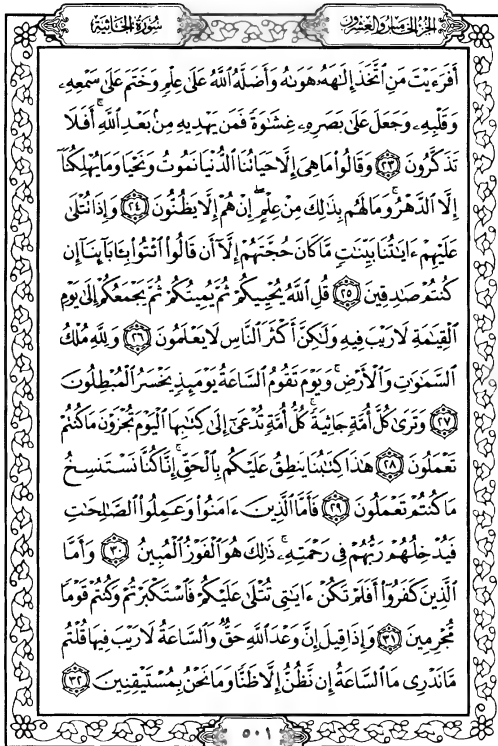 سُورَةُ الجَاثِيَة الجُزْءُ الخَامِسُ وَالعِشْرُونَ
أَفَرَءَيْتَ مَنِ ٱتَّخَذَ إِلَٰهَهُۥ هَوَىٰهُ وَأَضَلَّهُ ٱللَّهُ عَلَىٰ عِلْمٍ وَخَتَمَ عَلَىٰ سَمْعِهِۦ
وَقَلْبِهِۦ وَجَعَلَ عَلَىٰ بَصَرِهِۦ غِشَٰوَةً فَمَن يَهْدِيهِ مِنۢ بَعْدِ ٱللَّهِ ۚ أَفَلَا
تَذَكَّرُونَ ﴿٢٣﴾ وَقَالُوا۟ مَا هِىَ إِلَّا حَيَاتُنَا ٱلدُّنْيَا نَمُوتُ وَنَحْيَا وَمَا يُهْلِكُنَآ
إِلَّا ٱلدَّهْرُ ۚ وَمَا لَهُم بِذَٰلِكَ مِنْ عِلْمٍ ۖ إِنْ هُمْ إِلَّا يَظُنُّونَ ﴿٢٤﴾ وَإِذَا تُتْلَىٰ
عَلَيْهِمْ ءَايَٰتُنَا بَيِّنَٰتٍ مَّا كَانَ حُجَّتَهُمْ إِلَّآ أَن قَالُوا۟ ٱئْتُوا۟ بِـَٔابَآئِنَآ إِن
كُنتُمْ صَٰدِقِينَ ﴿٢٥﴾ قُلِ ٱللَّهُ يُحْيِيكُمْ ثُمَّ يُمِيتُكُمْ ثُمَّ يَجْمَعُكُمْ إِلَىٰ يَوْمِ
ٱلْقِيَٰمَةِ لَا رَيْبَ فِيهِ وَلَٰكِنَّ أَكْثَرَ ٱلنَّاسِ لَا يَعْلَمُونَ ﴿٢٦﴾ وَلِلَّهِ مُلْكُ
ٱلسَّمَٰوَٰتِ وَٱلْأَرْضِ ۚ وَيَوْمَ تَقُومُ ٱلسَّاعَةُ يَوْمَئِذٍ يَخْسَرُ ٱلْمُبْطِلُونَ
﴿٢٧﴾ وَتَرَىٰ كُلَّ أُمَّةٍ جَاثِيَةً ۚ كُلُّ أُمَّةٍ تُدْعَىٰٓ إِلَىٰ كِتَٰبِهَا ٱلْيَوْمَ تُجْزَوْنَ مَا كُنتُمْ
تَعْمَلُونَ ﴿٢٨﴾ هَٰذَا كِتَٰبُنَا يَنطِقُ عَلَيْكُم بِٱلْحَقِّ ۚ إِنَّا كُنَّا نَسْتَنسِخُ
مَا كُنتُمْ تَعْمَلُونَ ﴿٢٩﴾ فَأَمَّا ٱلَّذِينَ ءَامَنُوا۟ وَعَمِلُوا۟ ٱلصَّٰلِحَٰتِ
فَيُدْخِلُهُمْ رَبُّهُمْ فِى رَحْمَتِهِۦ ۚ ذَٰلِكَ هُوَ ٱلْفَوْزُ ٱلْمُبِينُ ﴿٣٠﴾ وَأَمَّا
ٱلَّذِينَ كَفَرُوٓا۟ أَفَلَمْ تَكُنْ ءَايَٰتِى تُتْلَىٰ عَلَيْكُمْ فَٱسْتَكْبَرْتُمْ وَكُنتُمْ قَوْمًا
مُّجْرِمِينَ ﴿٣١﴾ وَإِذَا قِيلَ إِنَّ وَعْدَ ٱللَّهِ حَقٌّ وَٱلسَّاعَةُ لَا رَيْبَ فِيهَا قُلْتُم
مَّا نَدْرِى مَا ٱلسَّاعَةُ إِن نَّظُنُّ إِلَّا ظَنًّا وَمَا نَحْنُ بِمُسْتَيْقِنِينَ ﴿٣٢﴾
٥٠١